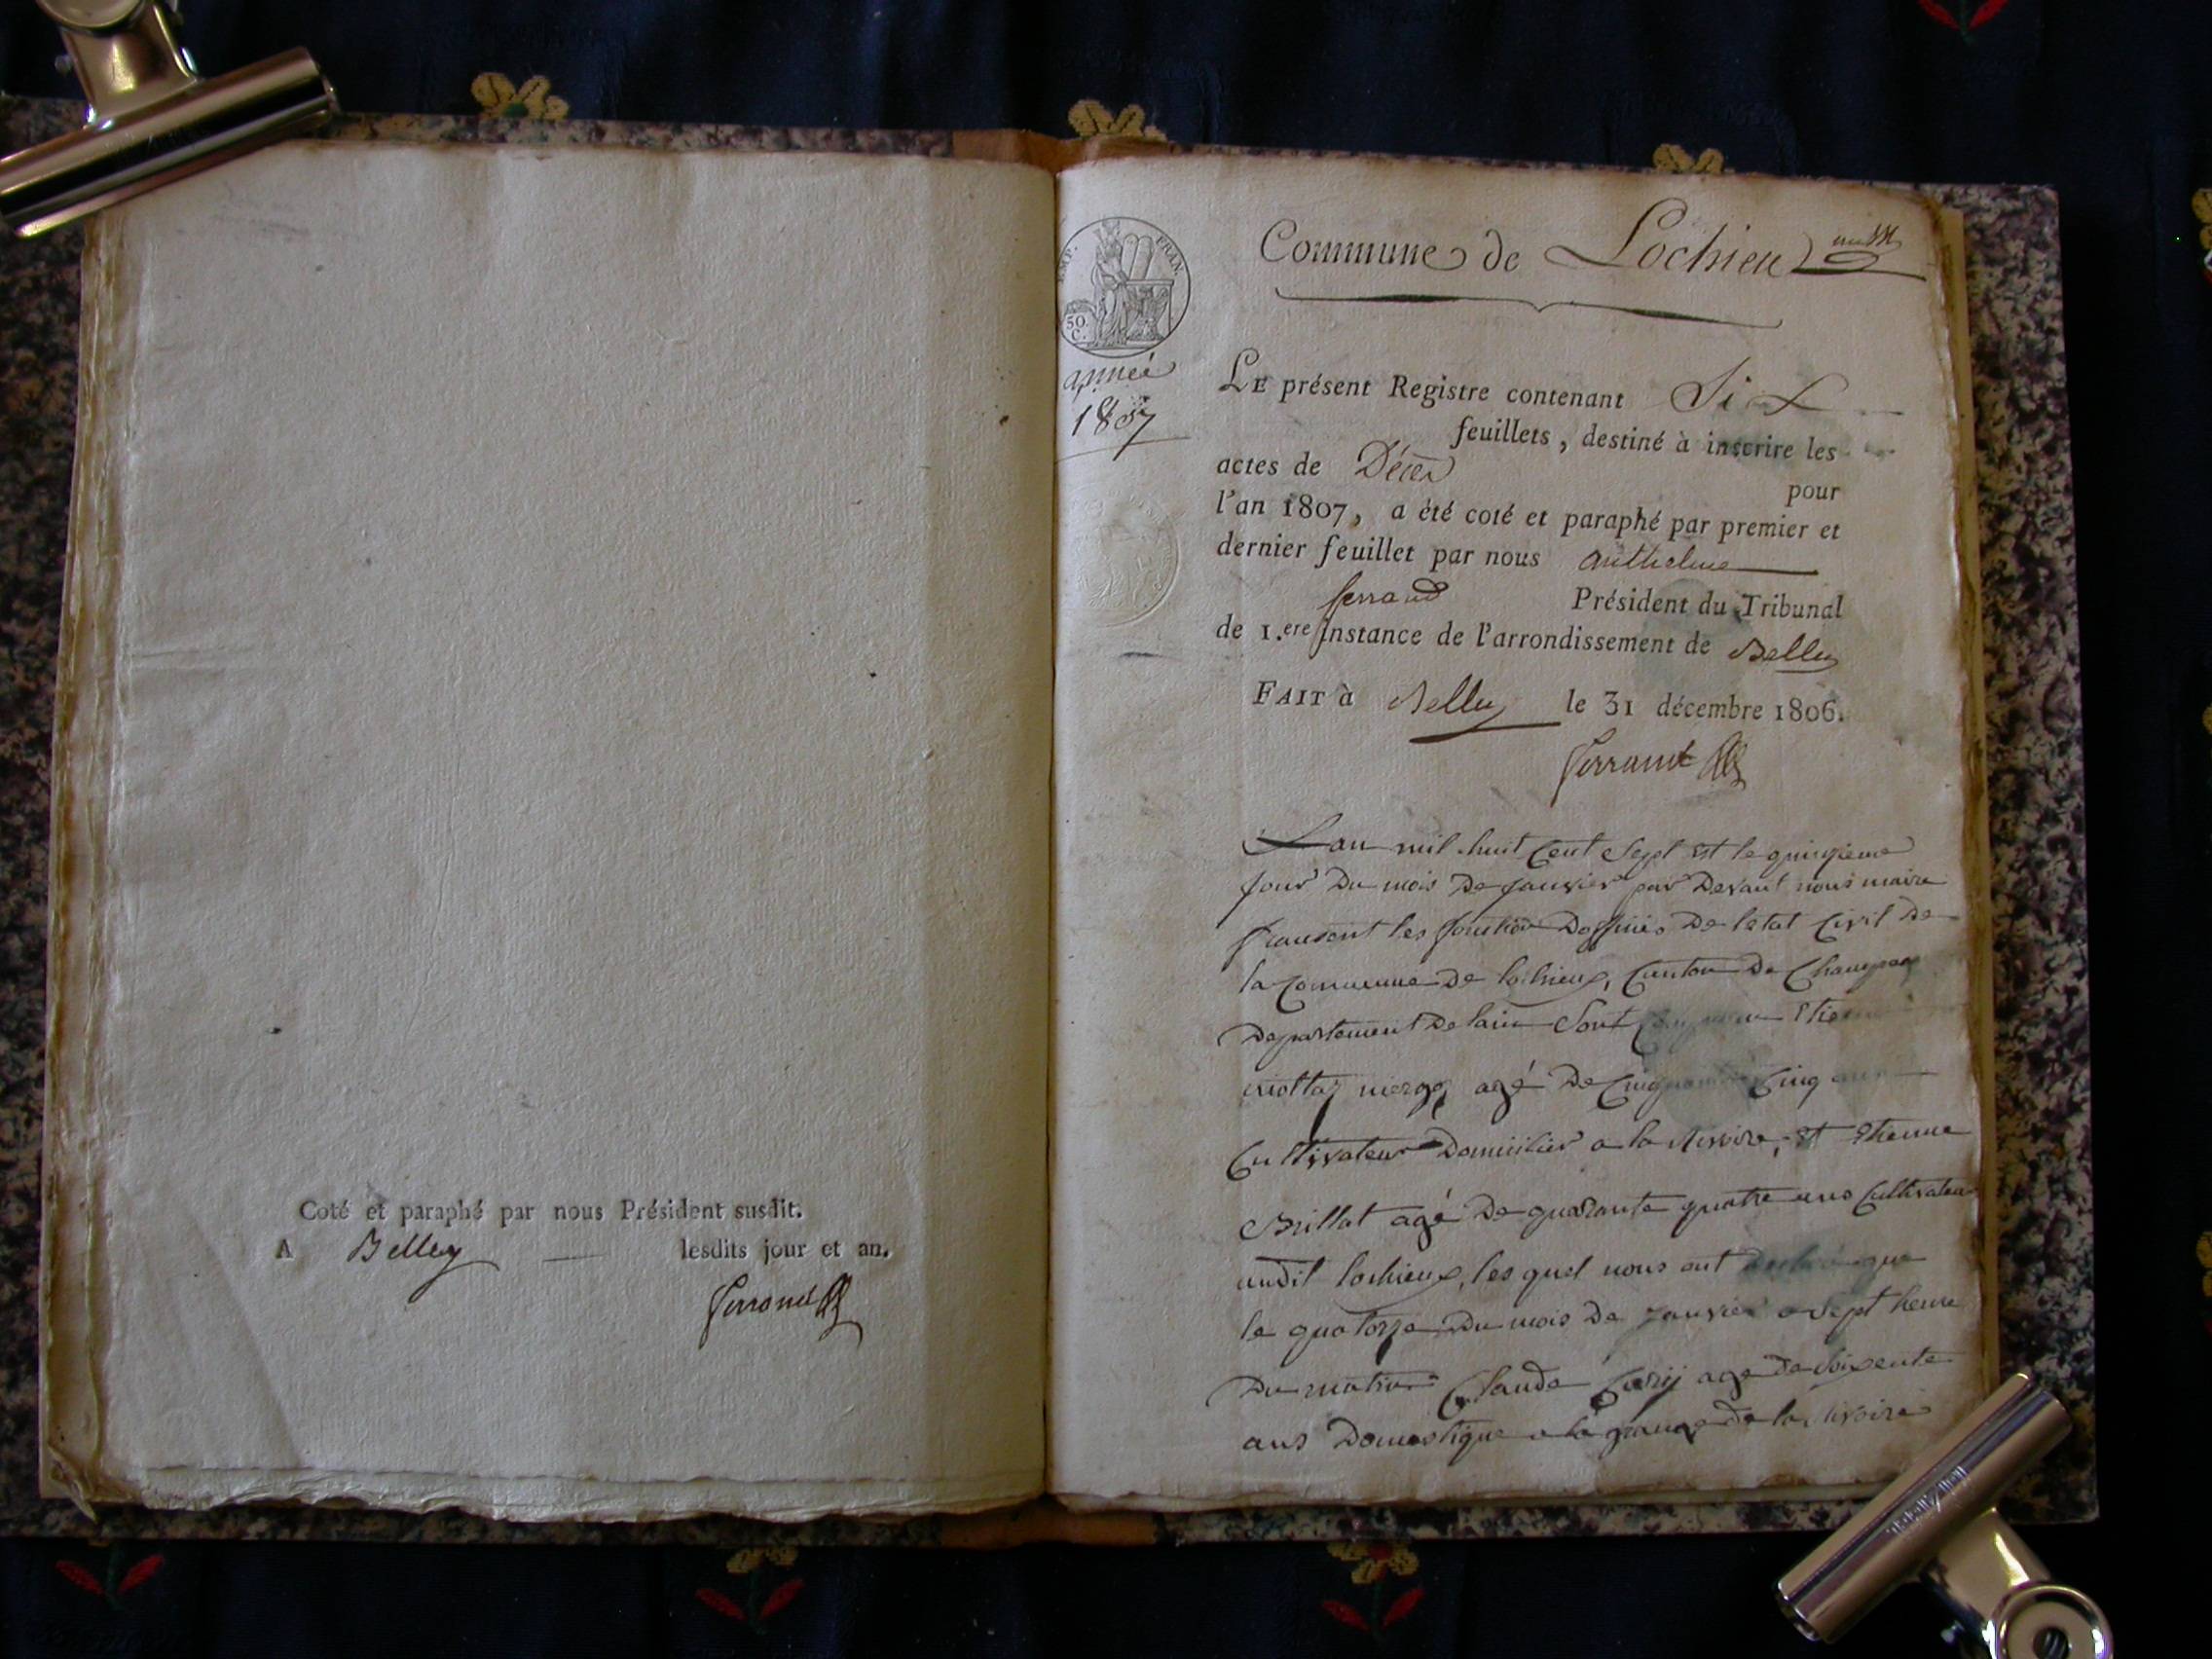 Coté et paraphé par nous Président susdit.
A Belley lesdits jour et an.
Ferrand
IMP. FRAN.
50 C.
année
1807
Commune de Lochieu
LE présent Registre contenant Six
feuillets, destiné à inscrire les
actes de Décès pour
l'an 1807, a été coté et paraphé par premier et
dernier feuillet par nous anthelme
ferrand Président du Tribunal
de 1.ere instance de l'arrondissement de Belley
FAIT à Belley le 31 décembre 1806.
Ferrand
Lan mil huit Cent Sept et le quinzieme
Jour Du mois De Janvier par Devant nous maire
les De letat Civil De
la Commune De lochieux, Canton De
Departement De lain Sont
agé De Cinquante Cinq ans
Cultivateur Domicilier a la et Etienne
Brillat agé De quarante quatre ans Cultivateur
audit lochieux, les quel nous ont declaré que
le quatorze Du mois De Janvier a Sept heure
Du matin Claude agé De Soixente
ans Domestique a la grange De la